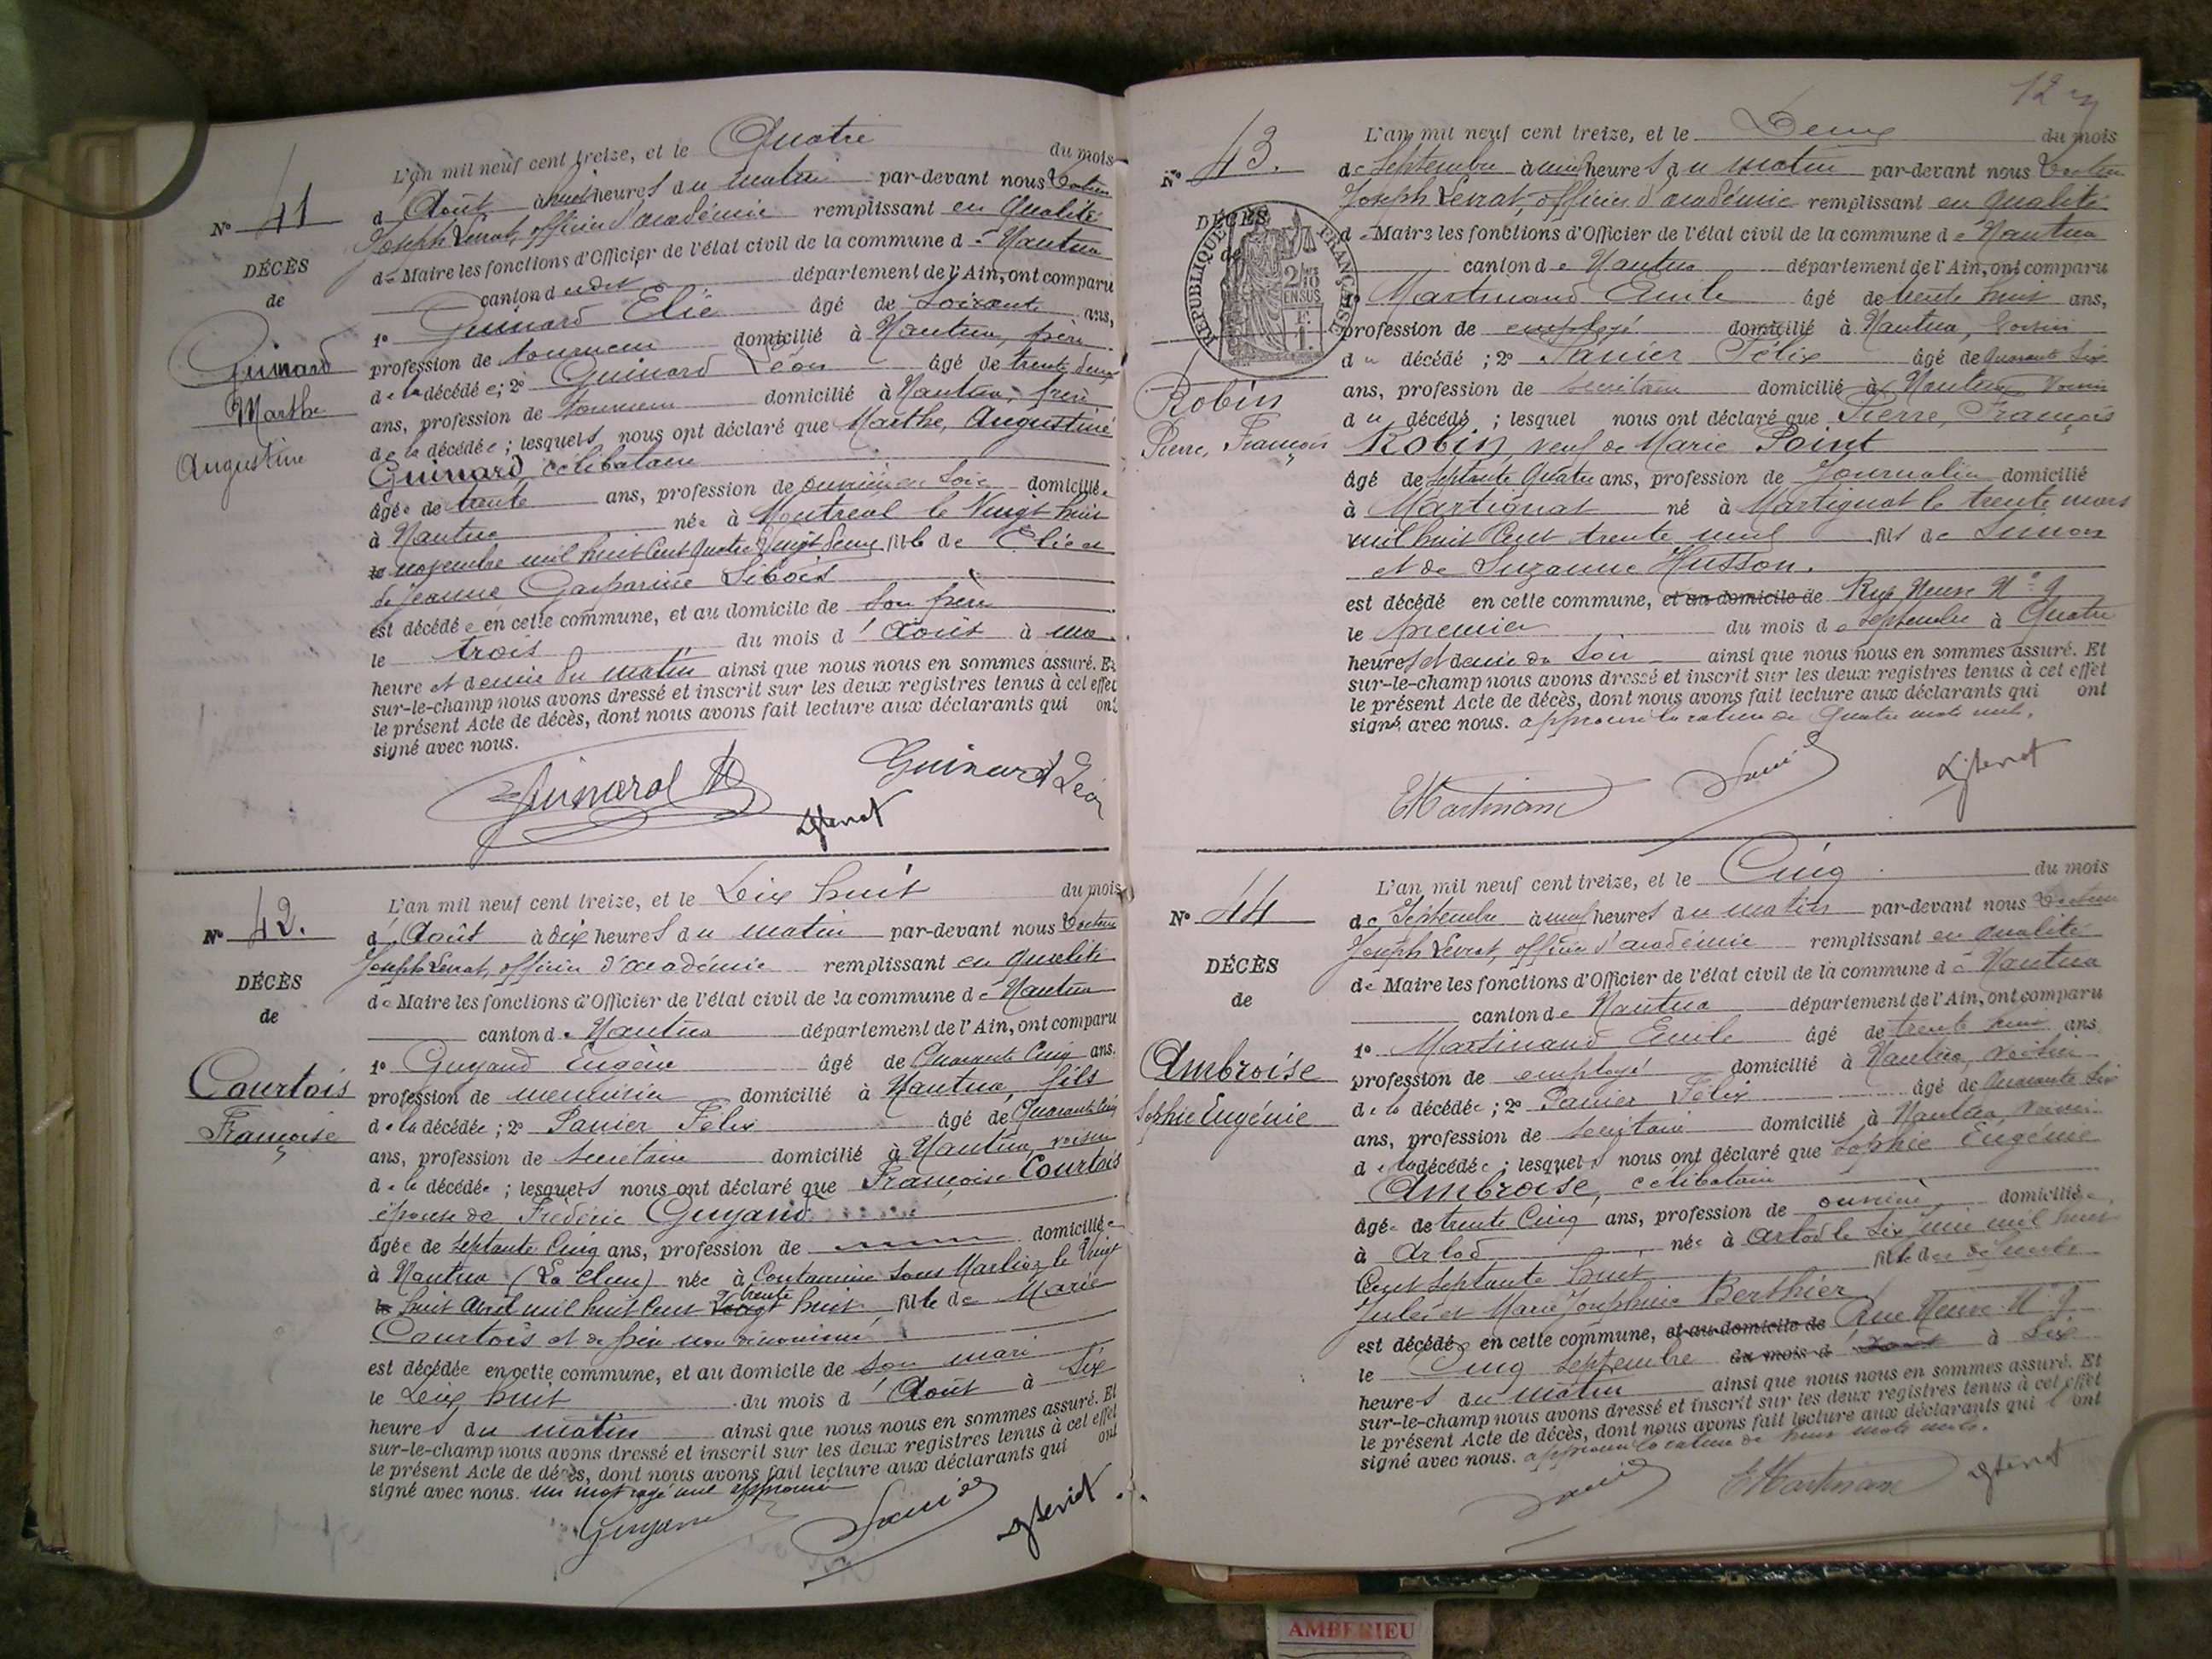 L'an mil neuf cent treize, et le Quatre du mois
N° 41
d'Août à huit heures du matin par-devant nous Docteur
Joseph Levrat, officier d'académie remplissant en qualité
DÉCÈS
de Maire les fonctions d'Officier de l'état civil de la commune de Nantua
de
canton dudit département de l'Ain, ont comparu
1° Guinard Elie âgé de soixante ans,
Guinard
profession de tourneur domicilié à Nantua, père
Marthe
de la décédée; 2° Guinard Léon âgé de trente deux
Augustine
ans, profession de tourneur domicilié à Nantua, frère
de la décédée; lesquels nous ont déclaré que Marthe, Augustine
Guinard célibataire
âgée de trente ans, profession de ouvrière en soie domiciliée
à Nantua née à Montréal le Vingt huit
novembre mil huit cent quatre vingt deux fille de Elie et
de Jeanne Gasparine Sibois
est décédée en cette commune, et au domicile de son père
le trois du mois d'Août à une
heure et demie du matin ainsi que nous nous en sommes assuré. Et
sur-le-champ nous avons dressé et inscrit sur les deux registres tenus à cet effet
le présent Acte de décès, dont nous avons fait lecture aux déclarants qui ont
signé avec nous.
Guinard
Guinard Léon
Levrat
L'an mil neuf cent treize, et le Dix huit du mois
N° 42.
d'Août à dix heures du matin par-devant nous Docteur
Joseph Levrat, officier d'académie remplissant en qualité
DÉCÈS
de Maire les fonctions d'Officier de l'état civil de la commune de Nantua
de
canton de Nantua département de l'Ain, ont comparu
1° Guyand Eugène âgé de Quarante Cinq ans.
Courtois
profession de menuisier domicilié à Nantua, fils
Françoise
de la décédée; 2° Panier Félix âgé de Quarante Cinq
ans, profession de secrétaire domicilié à Nantua, voisin
de la décédée; lesquels nous ont déclaré que Françoise Courtois
épouse de Frédéric Guyand
âgée de septante cinq ans, profession de domiciliée
à Nantua (La Cluse) née à Contamine sous Marlioz le Vingt
huit Avril mil huit cent trente huit fille de Marie
Courtois et de père non dénommé
est décédée en cette commune, et au domicile de son mari
le Dix huit du mois d'Août à Six
heures du matin ainsi que nous nous en sommes assuré. Et
sur-le-champ nous avons dressé et inscrit sur les deux registres tenus à cet effet
le présent Acte de décès, dont nous avons fait lecture aux déclarants qui ont
signé avec nous. un mot rayé nul approuvé
Guyand
Panier
Levrat
L'an mil neuf cent treize, et le Deux du mois
N° 43.
de Septembre à neuf heures du matin par-devant nous Docteur
Joseph Levrat, officier d'académie remplissant en qualité
DÉCÈS
de Maire les fonctions d'Officier de l'état civil de la commune de Nantua
de
RÉPUBLIQUE FRANÇAISE
canton de Nantua département de l'Ain, ont comparu
1° Martinand Emile âgé de trente huit ans,
profession de employé domicilié à Nantua, voisin
du décédé; 2° Panier Félix âgé de Quarante Six
ans, profession de secrétaire domicilié à Nantua voisin
Robin
du décédé; lesquel nous ont déclaré que Pierre, François
Pierre, François
Robin, veuf de Marie Point
âgé de septante Quatre ans, profession de Journalier domicilié
à Martignat né à Martignat le trente mars
mil huit cent trente neuf fils de Simon
et de Suzanne Husson.
est décédé en cette commune, et au domicile de Rue Neuve N° 9
le premier du mois de septembre à Quatre
heures et demie du soir ainsi que nous nous en sommes assuré. Et
sur-le-champ nous avons dressé et inscrit sur les deux registres tenus à cet effet
le présent Acte de décès, dont nous avons fait lecture aux déclarants qui ont
signé avec nous. approuvé la rature de Quatre mots nuls.
E Martinand
Panier
Levrat
L'an mil neuf cent treize, et le Cinq du mois
N° 44
de Septembre à neuf heures du matin par-devant nous Docteur
Joseph Levrat, officier d'académie remplissant en qualité
DÉCÈS
de Maire les fonctions d'Officier de l'état civil de la commune de Nantua
de
canton de Nantua département de l'Ain, ont comparu
1° Martinand Emile âgé de trente huit ans
Ambroise
profession de employé domicilié à Nantua, voisin
Sophie Eugénie
de la décédée; 2° Panier Félix âgé de Quarante Six
ans, profession de secrétaire domicilié à Nantua, voisin
de la décédée; lesquels nous ont déclaré que Sophie Eugénie
Ambroise, célibataire
âgée de trente Cinq ans, profession de ouvrière domiciliée
à Arlod née à Arlod le Six Juin mil huit
Cent septante huit fille des défunts
Jules et Marie Joséphine Berthier
est décédée en cette commune, et au domicile de Rue Neuve N° 9
le Cinq septembre du mois d'Août à Six
heures du matin ainsi que nous nous en sommes assuré. Et
sur-le-champ nous avons dressé et inscrit sur les deux registres tenus à cet effet
le présent Acte de décès, dont nous avons fait lecture aux déclarants qui ont
signé avec nous. approuvé la rature de huit mots nuls.
Panier
E Martinand
Levrat
AMBERIEU